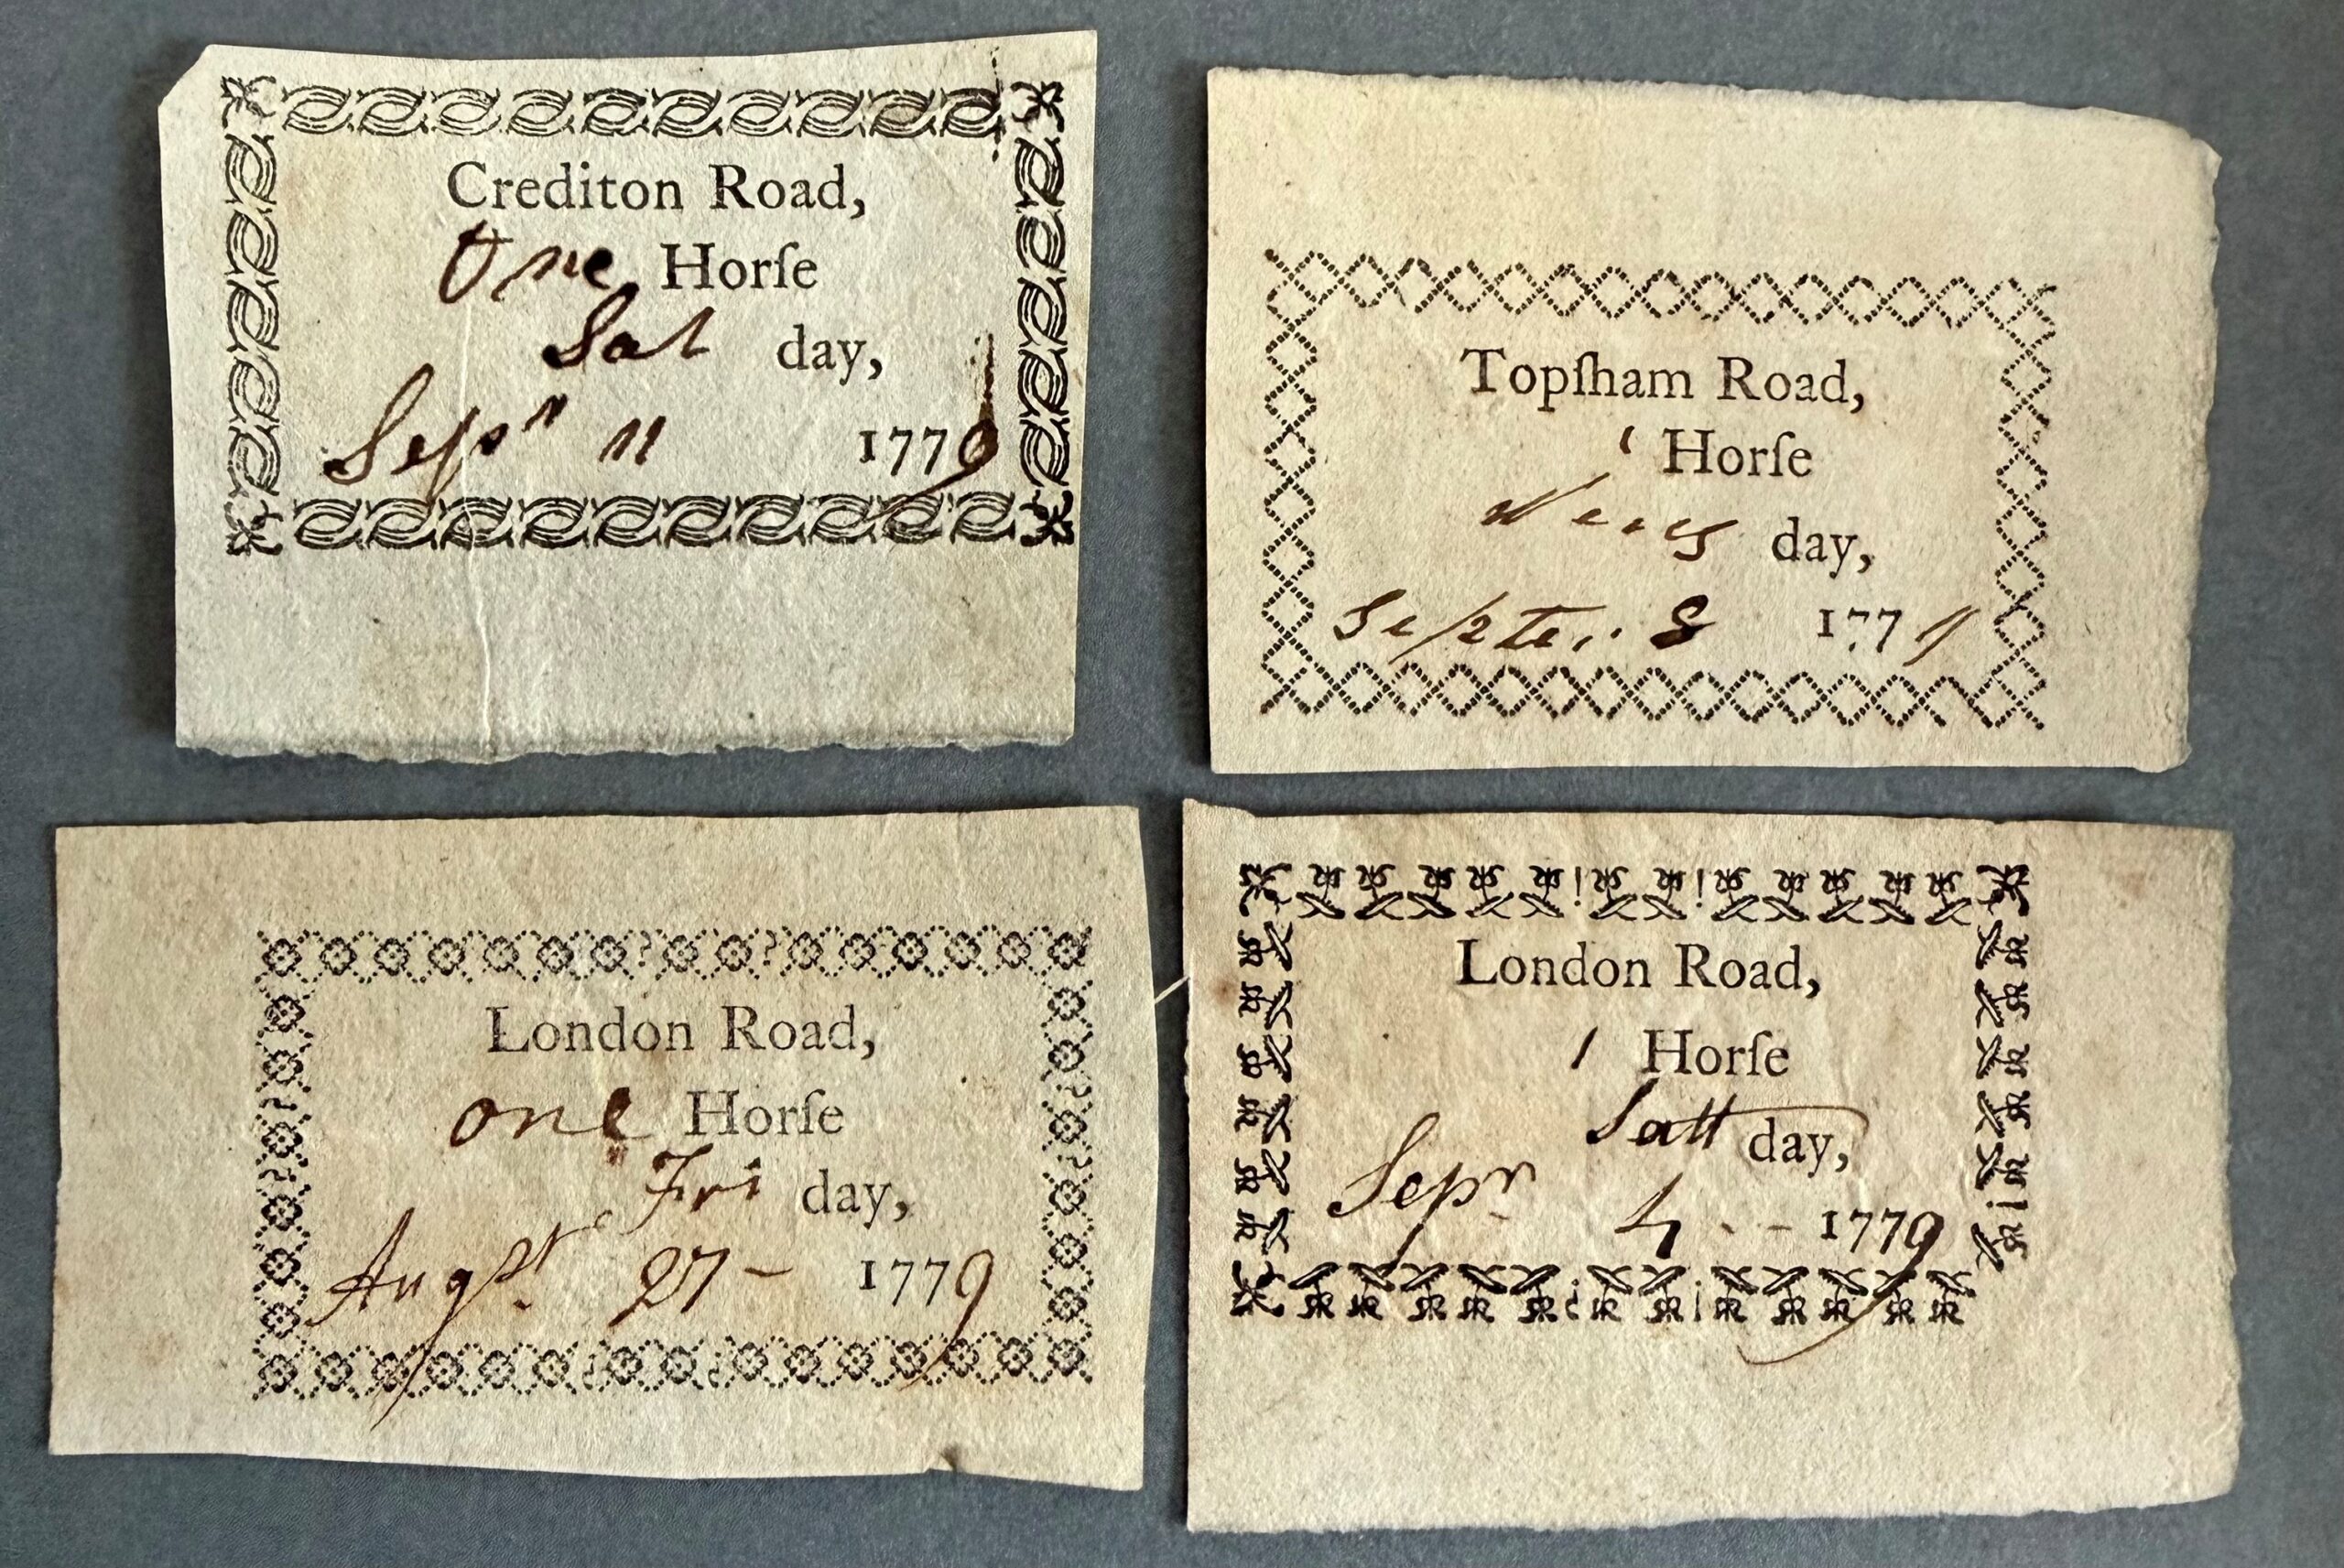 Crediton Road,
One Horſe
Sat day,
Sepr 11 1779
Topſham Road,
1 Horſe
day,
Septer 8 1779
London Road,
one Horſe
Fri day,
Augst 27 - 1779
London Road,
1 Horſe
Satt day,
Sepr 4 - - 1779